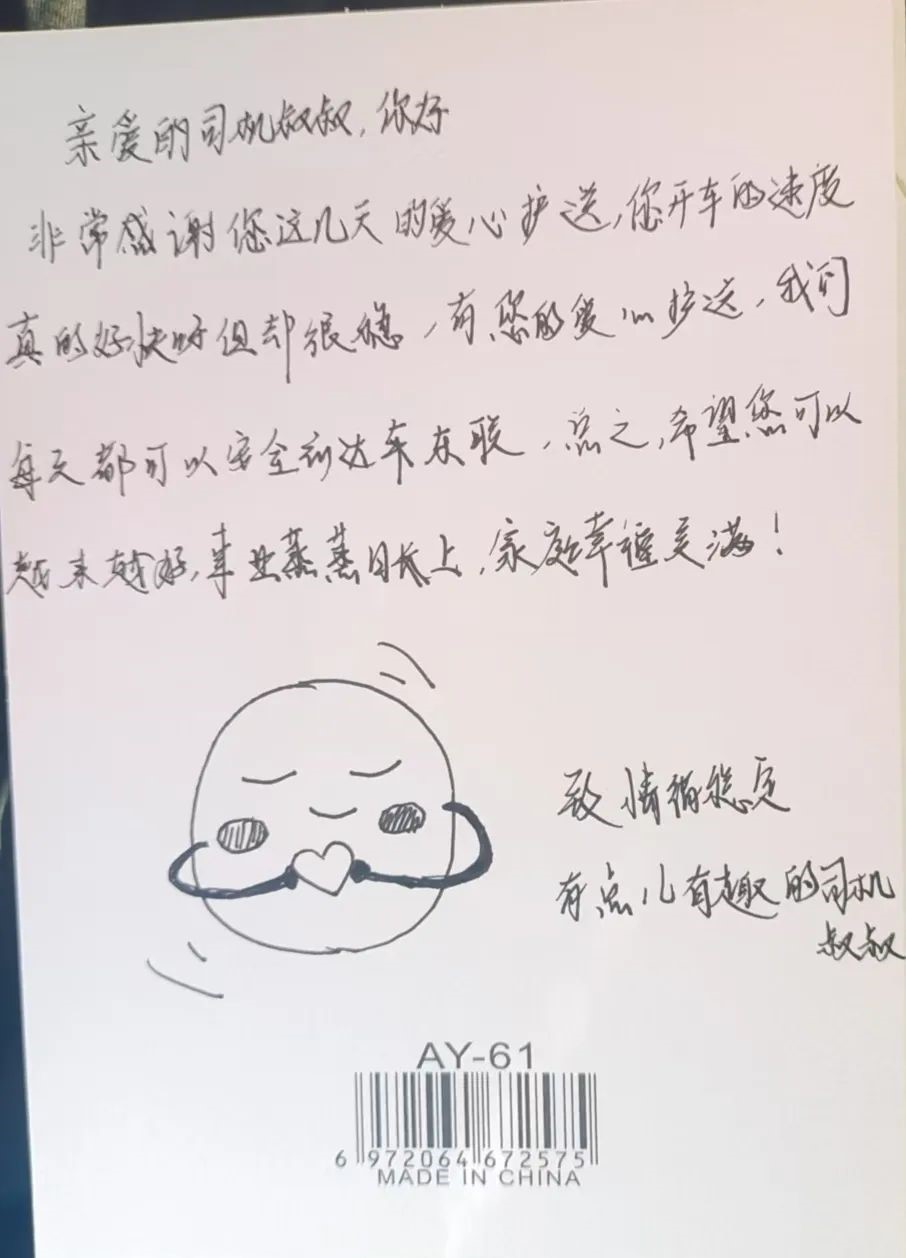 亲爱的司机叔叔，你好
非常感谢您这几天的爱心护送，您开车的速度
真的好快呀但却很稳，有您的爱心护送，我们
每天都可以安全到达车东联，总之，希望您可以
越来越好，事业蒸蒸日长上，家庭幸福美满！
致情绪稳定
有点儿有趣的司机
叔叔
AY-61
6 972064 672575
MADE IN CHINA